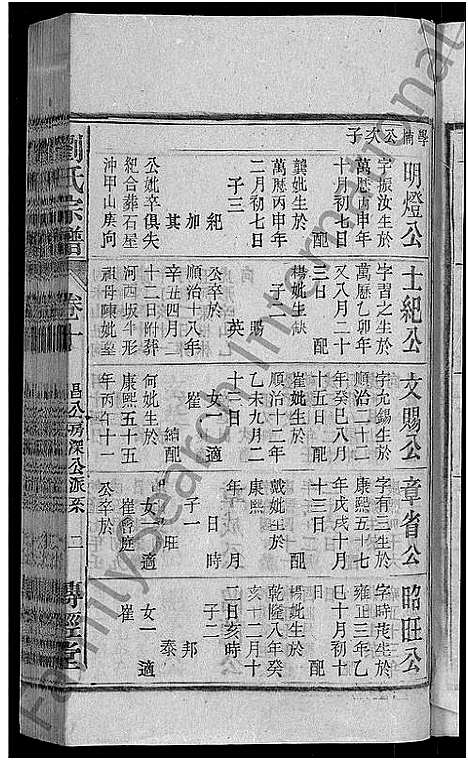 學楠公次子
明燈公
字振汝生於
萬歷丙申年
十月初七日
配
龔妣生於
萬歷丙申年
二月初七日
子三
紀
加
其
公妣卒俱失
紀合葬石屋
沖甲山庚向
士紀公
字習之生於
萬歷乙卯年
又八月二十
三日
配
楊妣生缺
子二
賜
英
公卒於
順治十八年
辛丑四月
十二日附葬
河西坂牛形
祖母陳妣塋
文賜公
字允錫生於
順治二十二
年癸巳八月
十五日
配
崔妣生於
順治十二年
乙未九月二
十三日
女一適
崔
續配
何妣生於
康熙五十五
年丙午十一
章省公
字有三生於
康熙五十七
年戊戌十月
十三日
配
戴妣生於
康熙
年 月
日 時
子一
旺
女一適
崔
庭
公卒於
昭旺公
字時茂生於
雍正三年乙
巳十月初十
日
配
楊妣生於
乾隆八年癸
亥十二月十
二日亥時
子二
邦
泰
女一適
崔
劉氏宗譜
卷十
昌公房深公派系
二
FamilySearch International